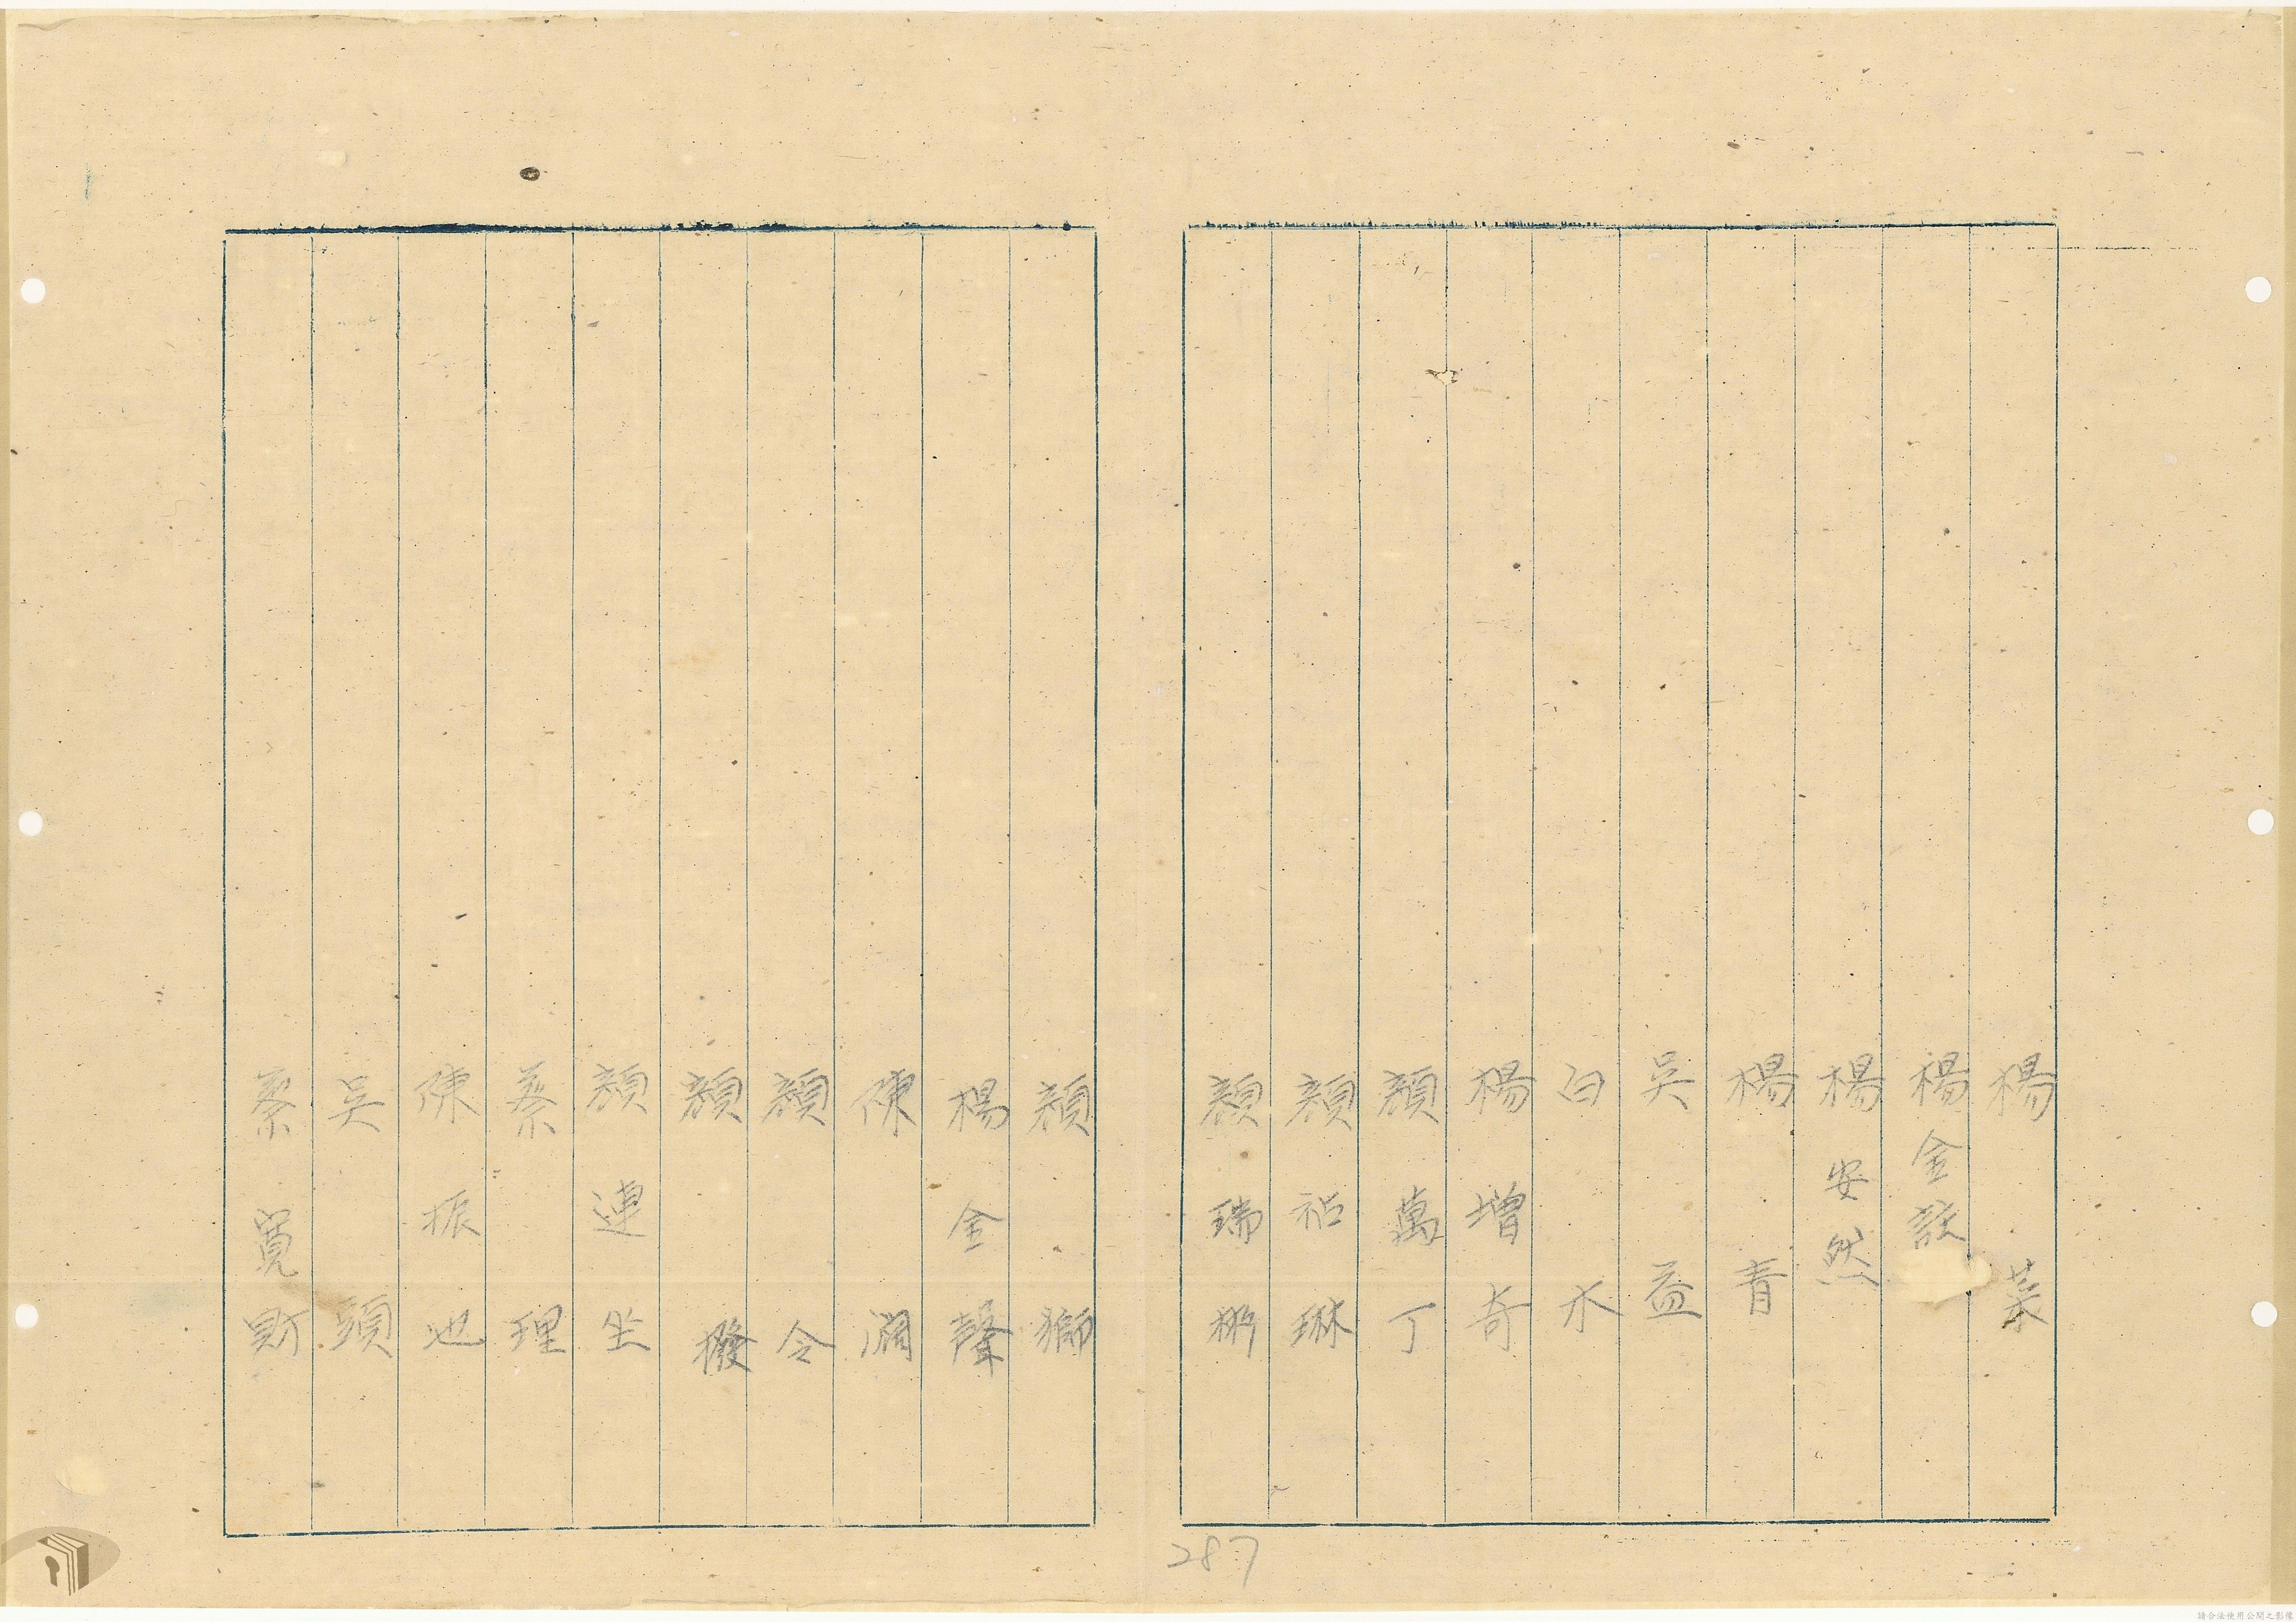 楊菜
楊金註
楊安然
楊青
吳益
白水
楊增奇
顏萬丁
顏琳
顏瑞
顏獅
楊金聲
陳濶
顏令
顏撥
顏連坐
蔡理
陳振也
吳頭
蔡寬財
287
請合法使用公開之影像